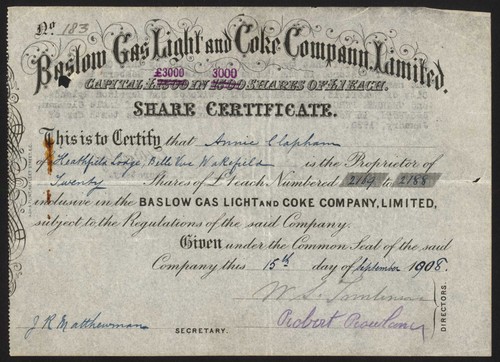 No. 183
Baslow Gas Light and Coke Company, Limited.
£3000 3000
CAPITAL £1500 IN 1500 SHARES OF £1 EACH.
SHARE CERTIFICATE.
This is to Certify that Annie Clapham
of Heathfield Lodge, Belle Vue Wakefield is the Proprietor of
Twenty Shares of £1 each, Numbered 2169 to 2188
inclusive in the BASLOW GAS LIGHT AND COKE COMPANY, LIMITED,
subject to the Regulations of the said Company.
Given under the Common Seal of the said
Company this 15th day of September 1908.
W. S. Tomlinson
J R Matthewman SECRETARY. Robert
DIRECTORS.